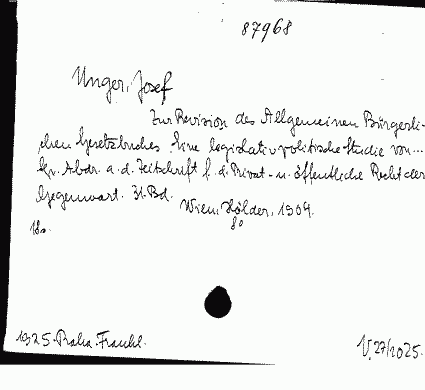 87968
Unger, Josef
Zur Revision des Allgemeinen Bürgerli-
chen Gesetzbuches Eine legislativpolitische Studie von ...
Abdr. a. d. Zeitschrift f. d. Privat- u. öffentliche Recht der
Gegenwart. 31. Bd.
Wien, Hölder, 1904.
8°
1925. Praha. Fraenkl.
V. 27/2025.